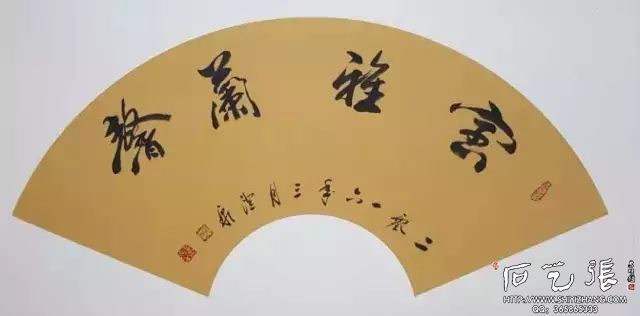 室雅蘭馨
二零一六年三月
石艺張
HTTP://WWW.SHIYIZHANG.COM
QQ: 365865333